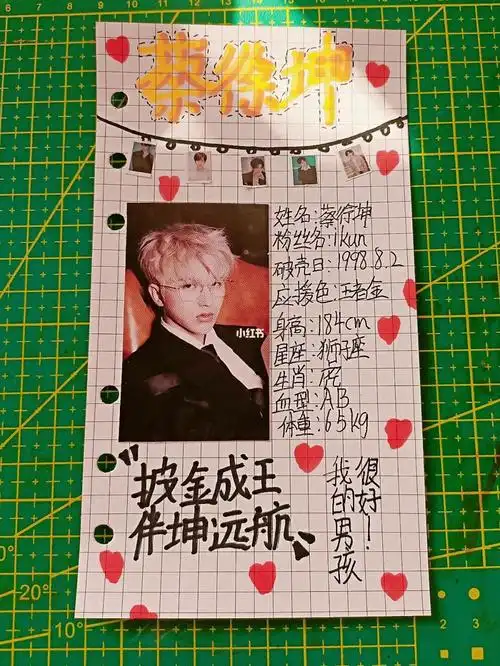 蔡徐坤
姓名:蔡徐坤
粉丝名:ikun
破壳日:1998.8.2
应援色:王者金
小红书
身高:184cm
星座:狮子座
生肖:虎
血型:AB
体重:65kg
"披金成王
伴坤远航"
很好!
我的男孩
20°
10°
2 3